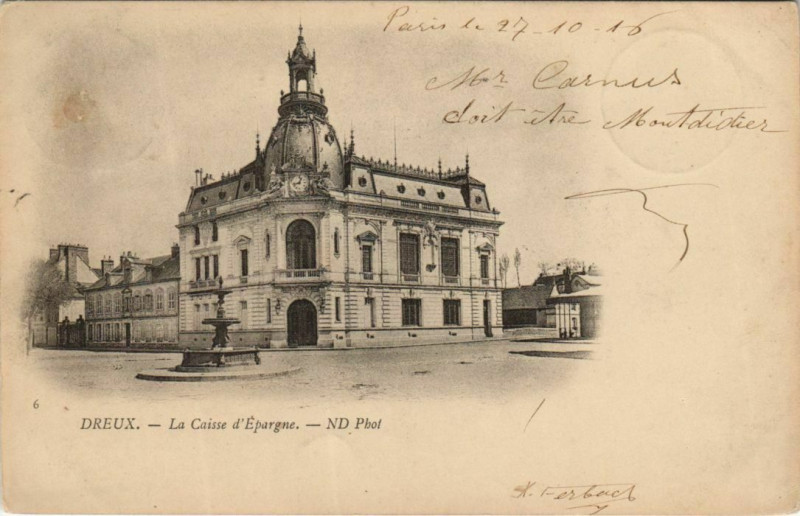 Paris le 27-10-16
Mr Carnus
doit être Montdidier
6
DREUX. — La Caisse d'Épargne. — ND Phot